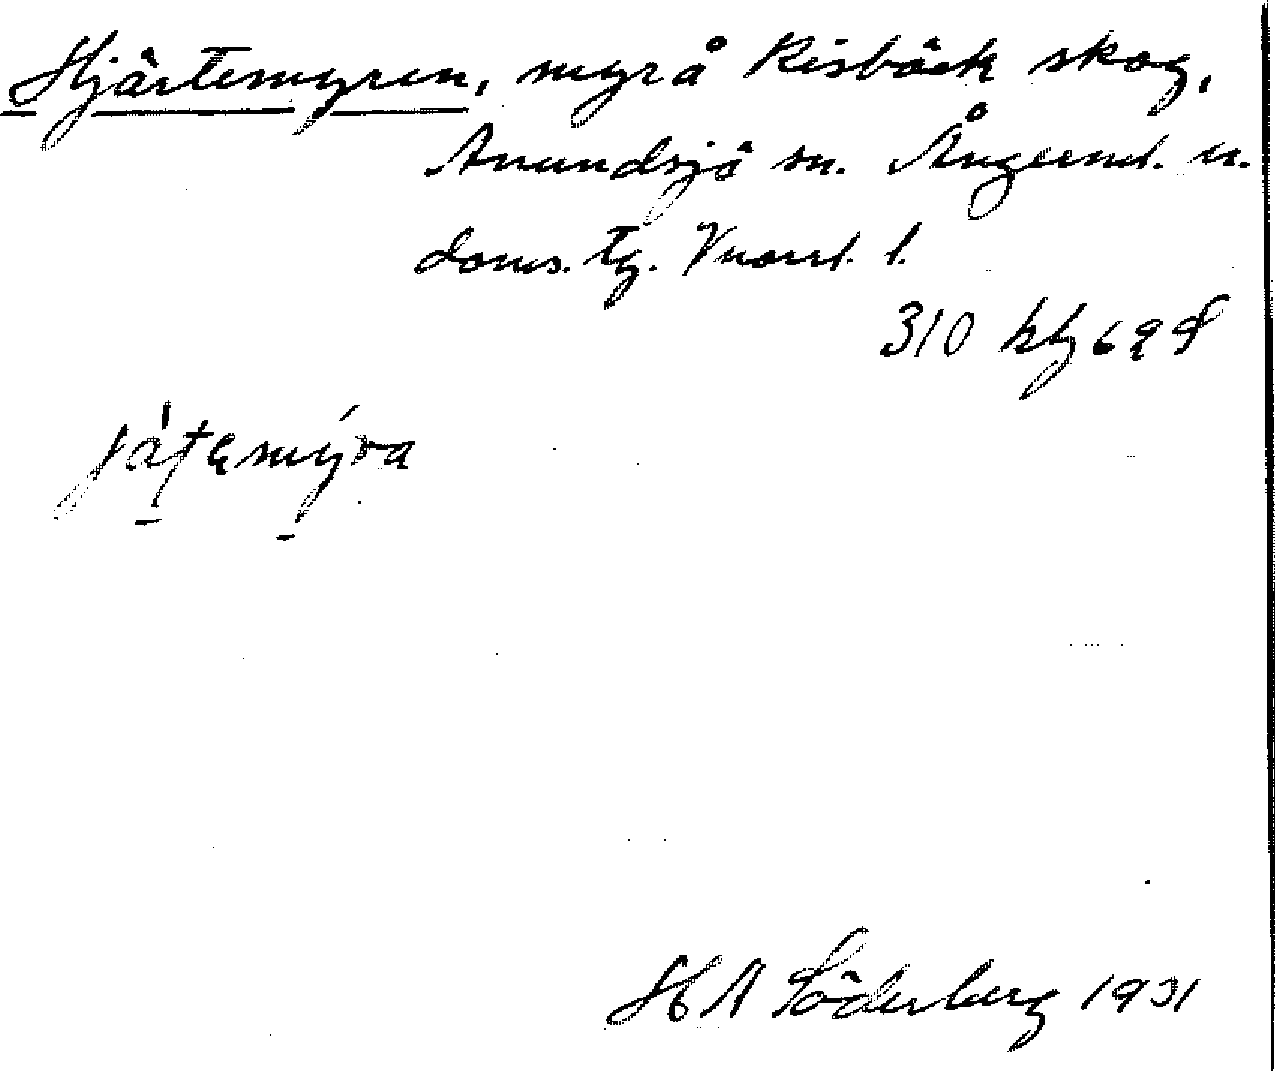 Hjärtemyren, myr å Risbäck skog,
Anundsjö sn. Ångerml. n.
doms. tg. Vnorrl. l.
310 kbg
játamýra
H A Söderberg 1931